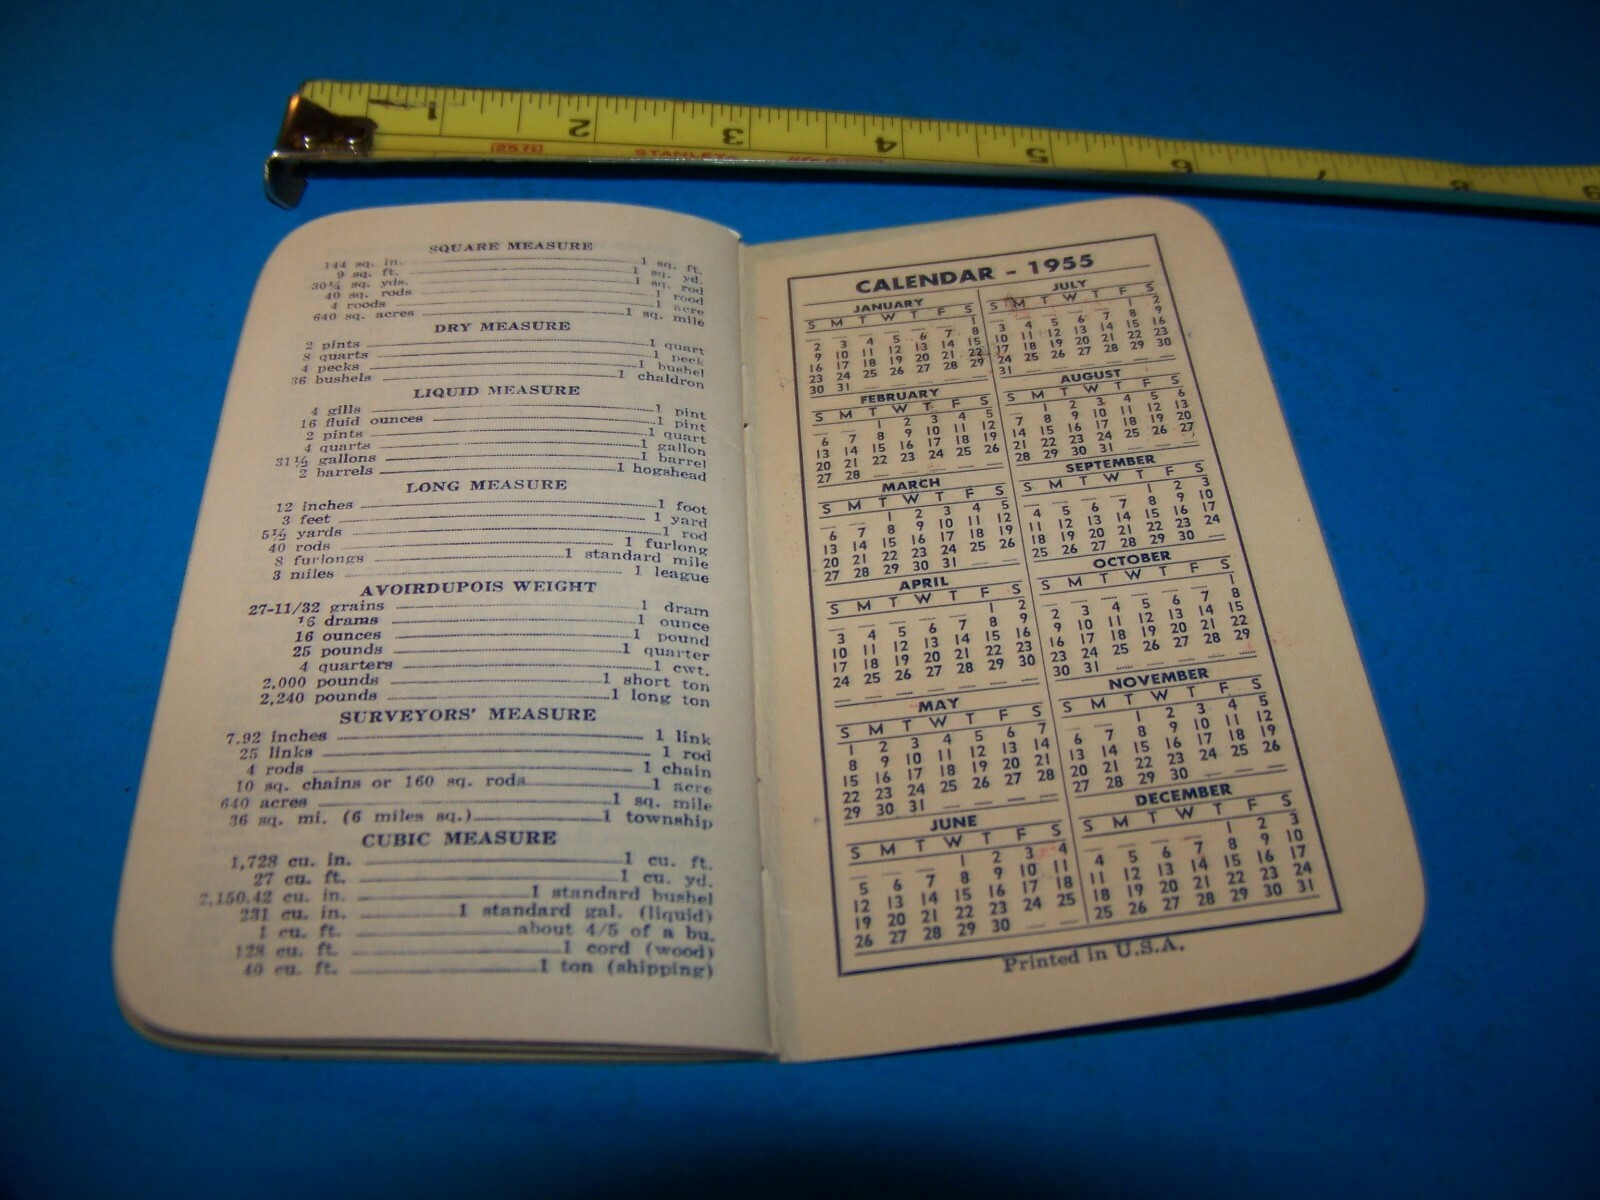 1 2 3 4 5 6 7 8 9
25 ft STANLEY
SQUARE MEASURE
144 sq. in. 1 sq. ft.
9 sq. ft. 1 sq. yd.
30¼ sq. yds. 1 sq. rod
40 sq. rods 1 rood
4 roods 1 acre
640 sq. acres 1 sq. mile
DRY MEASURE
2 pints 1 quart
8 quarts 1 peck
4 pecks 1 bushel
36 bushels 1 chaldron
LIQUID MEASURE
4 gills 1 pint
16 fluid ounces 1 pint
2 pints 1 quart
4 quarts 1 gallon
31½ gallons 1 barrel
2 barrels 1 hogshead
LONG MEASURE
12 inches 1 foot
3 feet 1 yard
5½ yards 1 rod
40 rods 1 furlong
8 furlongs 1 standard mile
3 miles 1 league
AVOIRDUPOIS WEIGHT
27-11/32 grains 1 dram
16 drams 1 ounce
16 ounces 1 pound
25 pounds 1 quarter
4 quarters 1 cwt.
2,000 pounds 1 short ton
2,240 pounds 1 long ton
SURVEYORS' MEASURE
7.92 inches 1 link
25 links 1 rod
4 rods 1 chain
10 sq. chains or 160 sq. rods 1 acre
640 acres 1 sq. mile
36 sq. mi. (6 miles sq.) 1 township
CUBIC MEASURE
1,728 cu. in. 1 cu. ft.
27 cu. ft. 1 cu. yd.
2,150.42 cu. in. 1 standard bushel
231 cu. in. 1 standard gal. (liquid)
1 cu. ft. about 4/5 of a bu.
128 cu. ft. 1 cord (wood)
40 cu. ft. 1 ton (shipping)
CALENDAR - 1955
JANUARY
S M T W T F S
1
2 3 4 5 6 7 8
9 10 11 12 13 14 15
16 17 18 19 20 21 22
23 24 25 26 27 28 29
30 31
FEBRUARY
S M T W T F S
1 2 3 4 5
6 7 8 9 10 11 12
13 14 15 16 17 18 19
20 21 22 23 24 25 26
27 28
MARCH
S M T W T F S
1 2 3 4 5
6 7 8 9 10 11 12
13 14 15 16 17 18 19
20 21 22 23 24 25 26
27 28 29 30 31
APRIL
S M T W T F S
1 2
3 4 5 6 7 8 9
10 11 12 13 14 15 16
17 18 19 20 21 22 23
24 25 26 27 28 29 30
MAY
S M T W T F S
1 2 3 4 5 6 7
8 9 10 11 12 13 14
15 16 17 18 19 20 21
22 23 24 25 26 27 28
29 30 31
JUNE
S M T W T F S
1 2 3 4
5 6 7 8 9 10 11
12 13 14 15 16 17 18
19 20 21 22 23 24 25
26 27 28 29 30
JULY
S M T W T F S
1 2
3 4 5 6 7 8 9
10 11 12 13 14 15 16
17 18 19 20 21 22 23
24 25 26 27 28 29 30
31
AUGUST
S M T W T F S
1 2 3 4 5 6
7 8 9 10 11 12 13
14 15 16 17 18 19 20
21 22 23 24 25 26 27
28 29 30 31
SEPTEMBER
S M T W T F S
1 2 3
4 5 6 7 8 9 10
11 12 13 14 15 16 17
18 19 20 21 22 23 24
25 26 27 28 29 30
OCTOBER
S M T W T F S
1
2 3 4 5 6 7 8
9 10 11 12 13 14 15
16 17 18 19 20 21 22
23 24 25 26 27 28 29
30 31
NOVEMBER
S M T W T F S
1 2 3 4 5
6 7 8 9 10 11 12
13 14 15 16 17 18 19
20 21 22 23 24 25 26
27 28 29 30
DECEMBER
S M T W T F S
1 2 3
4 5 6 7 8 9 10
11 12 13 14 15 16 17
18 19 20 21 22 23 24
25 26 27 28 29 30 31
Printed in U.S.A.